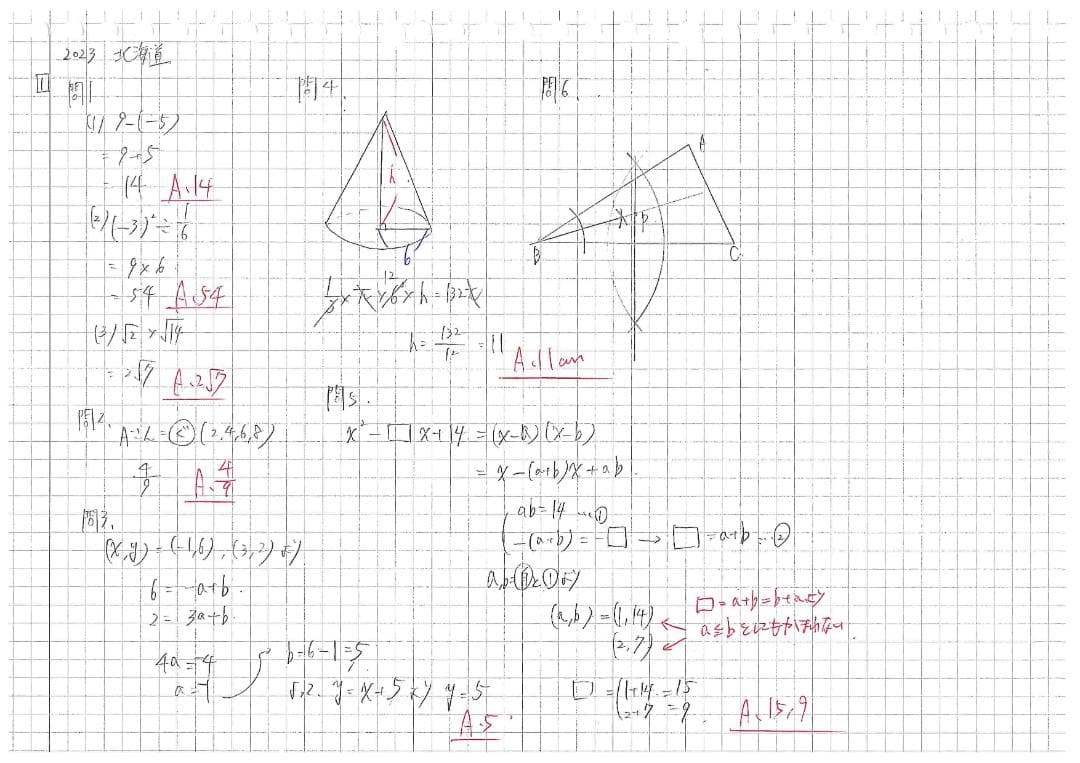 2023 北海道
1
問1
(1) 9-(-5)
= 9+5
= 14 A.14
(2) (-3)² ÷ 1/6
= 9×6
= 54 A.54
(3) √2 × √14
= 2√7 A.2√7
問2.
(2,4,6,8)
4/9 A.4/9
問3.
(x,y) = (-1,6), (3,2) より
6 = -a+b.
2 = 3a+b.
4a = -4
a = -1
b = 6-1 = 5
よって y = x+5 より y = 5
A.5
問4.
h
6
1/3 × π × 6² × h = 132π
12
h = 132/12 = 11
A.11cm
問5.
x² - □x + 14 = (x-a)(x-b)
= x - (a+b)x + ab
ab = 14 …①
-(a+b) = -□ → □ = a+b …②
①より
(a,b) = (1,14)
(2,7)
□ = a+b = b+aより
a≦bとしてもかまわない.
□ = 1+14 = 15
2+7 = 9.
A.15,9
問6.
A
P
B
C